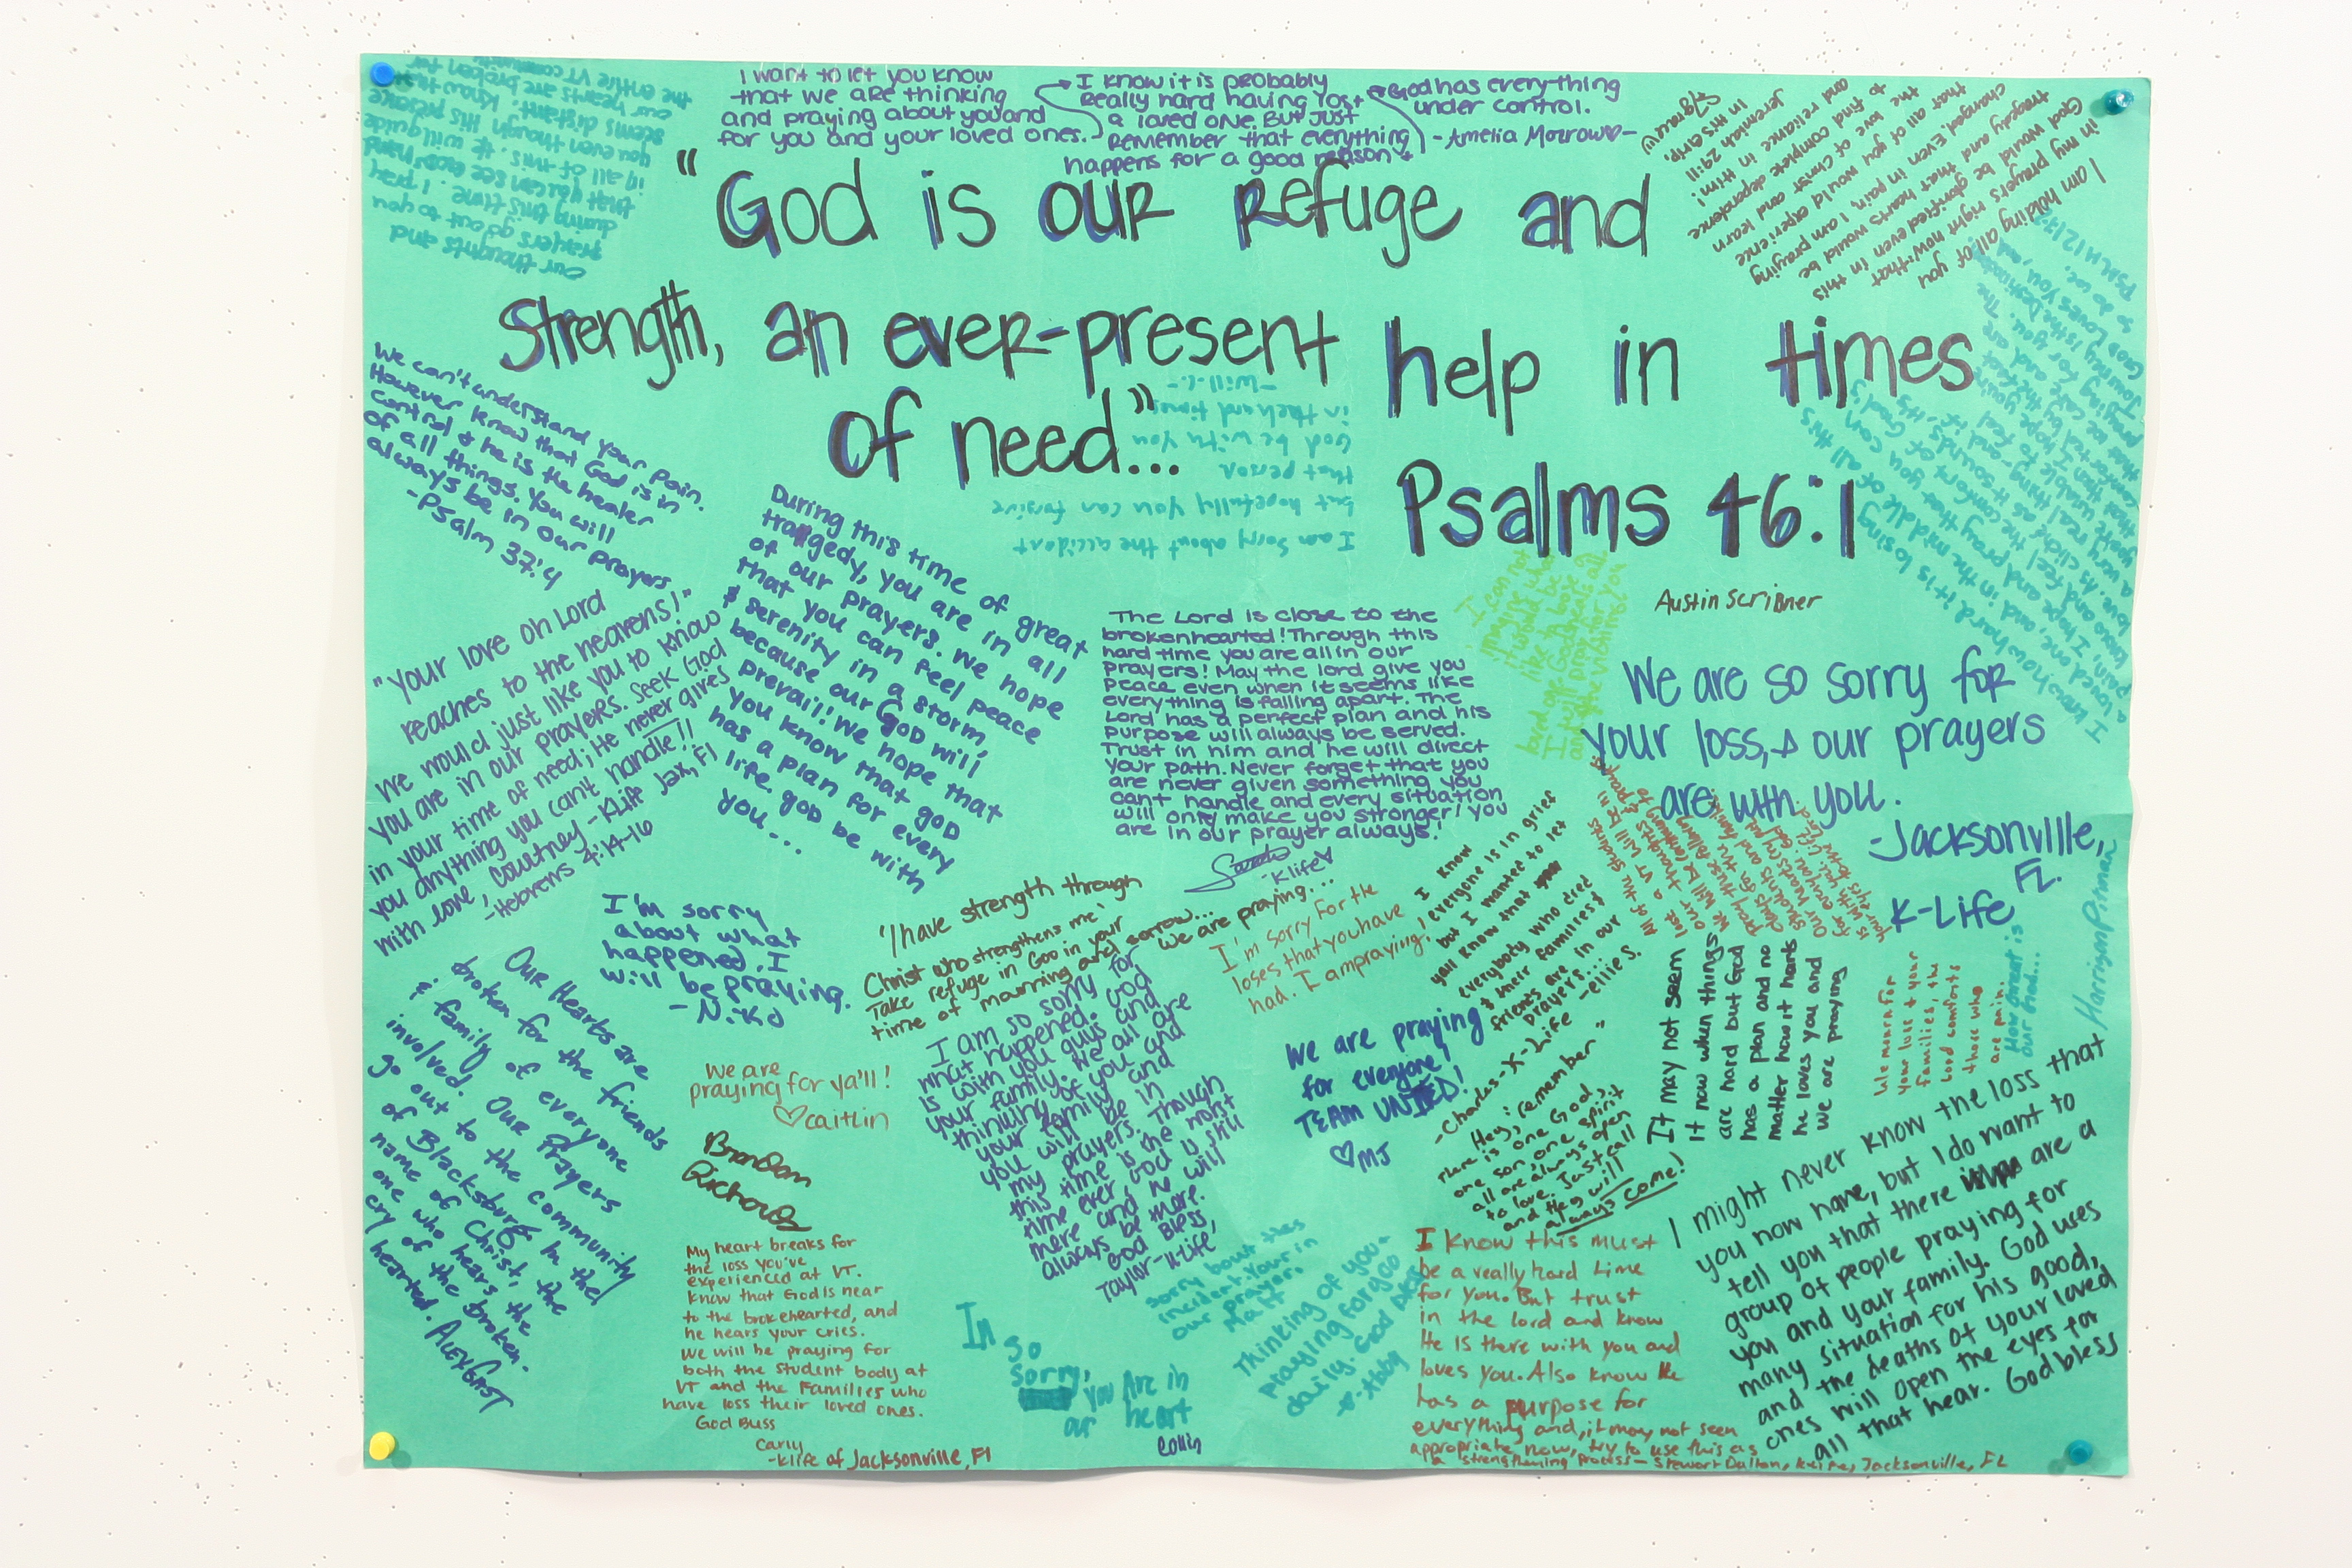 I want to let you know
that we are thinking
and praying about you and
for you and your loved ones.
I know it is probably
really hard having lost
a loved one. But just
Remember that everything
happens for a good reason
God has everything
under control.
- Amelia Morrow -
"God is our refuge and
Strength, an ever-present help in times
of need..."
Psalms 46:1
Our thoughts and
prayers go out to you
during this time. I pray
that you can see God's hand
in all of this. He will guide
you even though his presence
seems distant. Know that
our hearts are broken for
the entire VT community
I am holding all of you
in my prayers right now - that
God would be glorified even in this
tragedy and that hearts would be
changed. Even in pain, I am praying
that all of you would experience
the love of Christ and learn
to find complete dependence
and reliance in Him!
Jeremiah 29:11
In His Grip,
I am sorry about the accident
but hopefully you can forgive
that person
God be with you
in the hard times
- Will - C -
We can't understand your pain.
However know that God is in
control & he is the healer
of all things. You will
always be in our prayers
- Psalm 37:4
"Your love oh Lord
reaches to the heavens!"
We would just like you to know
you are in our prayers. Seek God
in your time of need; He never gives
you anything you can't handle!!
With love, Courtney - Klife Jax, Fl
- Hebrews 4:14-16
During this time of great
tragedy, you are in all
of our prayers. We hope
that you can feel peace
& serenity in a storm,
because our God will
prevail! We hope that
you know that god
has a plan for every
life. god be with
you...
The Lord is close to the
brokenhearted! Through this
hard time you are all in our
prayers! May the lord give you
peace even when it seems like
everything is falling apart. The
Lord has a perfect plan and his
purpose will always be served.
Trust in him and he will direct
your path. Never forget that you
are never given something you
cant handle and every situation
will only make you stronger! You
are in our prayer always!
- Klife
I can not
imagine what
it would be
like to lose a
loved one. God heals all
I will pray for you
and the victims
Austin Scribner
We are so sorry for
your loss, & our prayers
are with you.
- Jacksonville,
FL.
K-Life
I know how hard it is losing
a loved one, and in the middle of all this
Harrison Pitman
How great is
our God...
I'm sorry
about what
happened. I
will be praying.
- Niko
'I have strength through
Christ who strengthens me'
Take refuge in God in your
time of mourning and sorrow...
we are praying...
I'm sorry for the
loses that you have
had. I am praying.
I know
everyone is in grief
but I wanted to let
you know that
everybody who died
& their families &
friends are in our
prayers...
- Ellie S.
Our Hearts are
broken for the friends
& family of everyone
involved. Our Prayers
go out to the community
of Blacksburg In the
name of Christ, the
one who hears the
cry of the broken-
hearted. Alex Gast
We are
praying for ya'll!
♡ caitlin
Brandon
Richards
I am so sorry for
what happened. God
is with you guys and
your family. We all are
thinking of you and
your family and
you will be in
my prayers. Though
this time is the worst
time ever God is still
there and he will
always be there.
God Bless,
Taylor - K-Life
We are praying
for everyone!
TEAM UNITED!
♡ MJ
- Charles - K-Life
Hey, "remember"
there is one God,
one son, one spirit
all are always open
to love. Just call
and they will
always come!
It may not seem
it now when things
are hard but God
has a plan and no
matter how it hurts
he loves you and
we are praying
We mourn for
your lose & your
families, the
Lord comforts
those who
are pain.
My heart breaks for
the loss you've
experienced at VT.
Know that God is near
to the brokehearted, and
he hears your cries.
We will be praying for
both the student body at
VT and the Families who
have loss their loved ones.
God Bless
Carly
- Klife of Jacksonville, Fl
Im so
sorry,
you Are in
our heart
Collin
Sorry bout this
incident. Your in
our prayer.
Matt
Thinking of you &
praying for you
daily. God Bless
- Abby
I know this must
be a really hard time
for you. But trust
in the lord and know
He Is there with you and
loves you. Also know He
has a purpose for
everything and, it may not seem
appropriate now, try to use this as
a strengthening process - Stewart Dalton, Klife, Jacksonville, FL
I might never know the loss that
you now have, but I do want to
tell you that there are a
group of people praying for
you and your family. God uses
many situation for his good,
and the deaths of your loved
ones will open the eyes for
all that hear. God bless